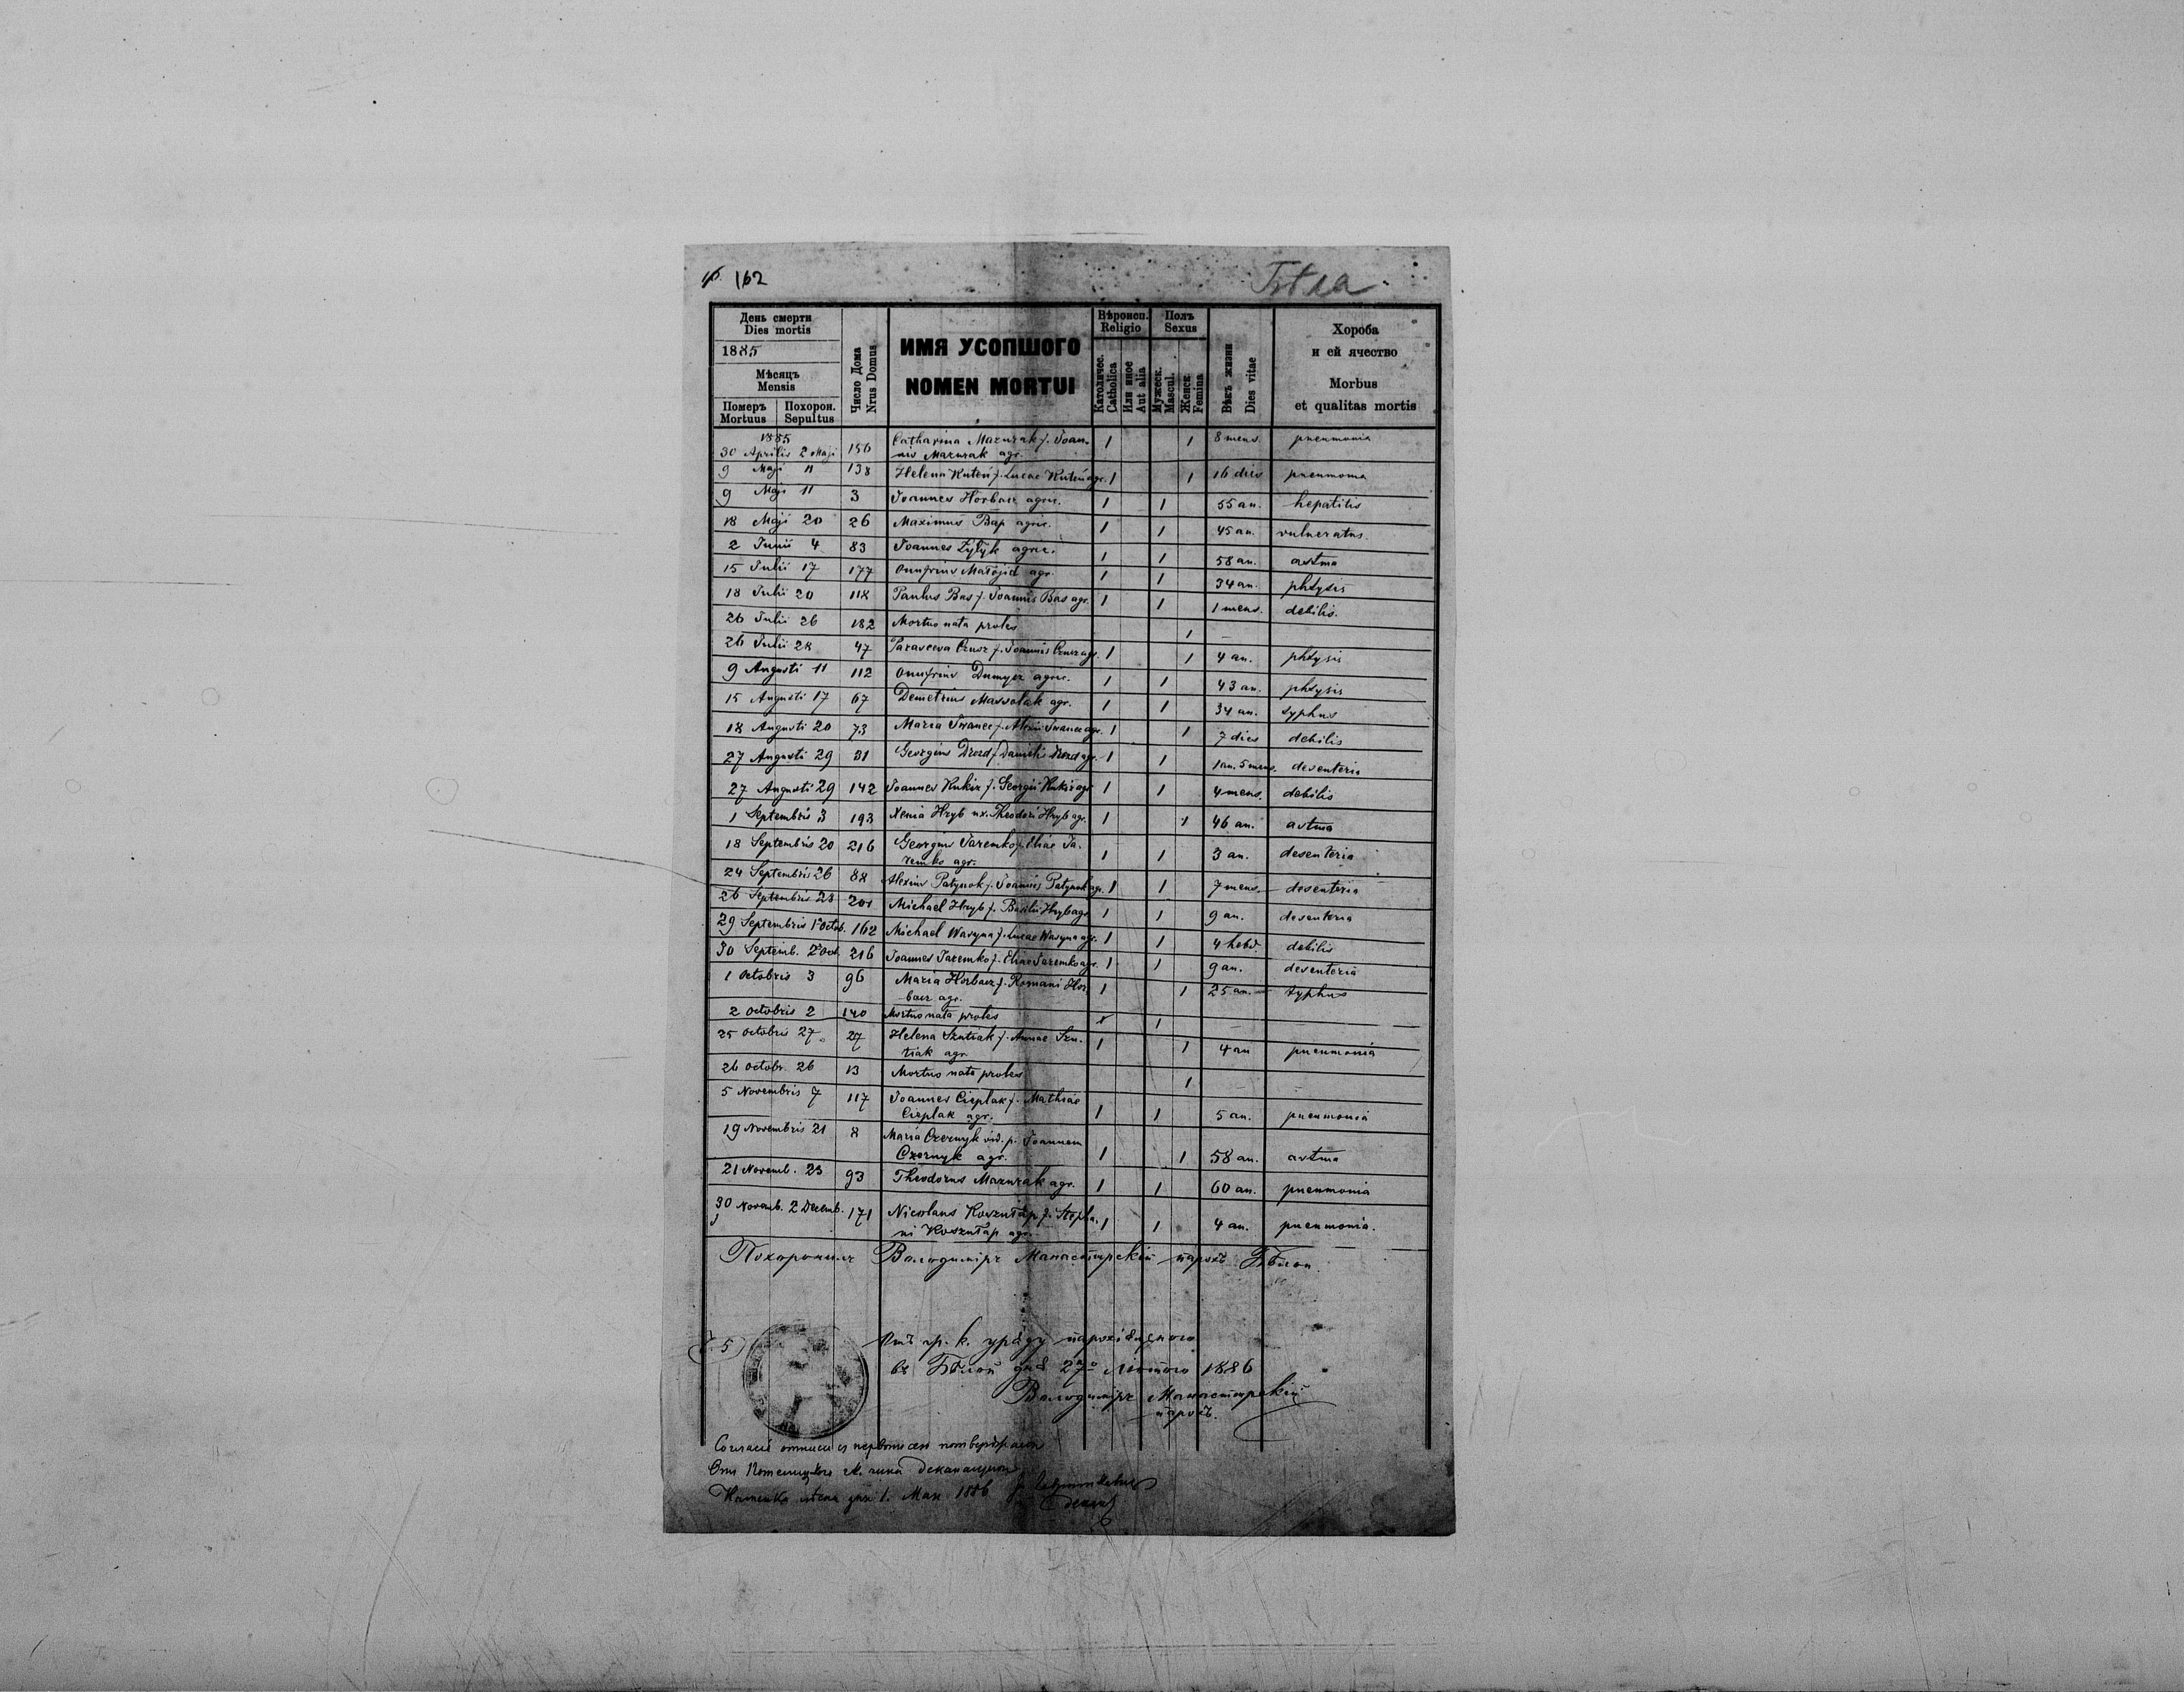 162
Бѣла
День смерти
Dies mortis
1885
Мѣсяцъ
Mensis
Померъ Похорон.
Mortuus Sepultus
Число Дома
Nrus Domus
ИМЯ УСОПШОГО
NOMEN MORTUI
Вѣроисп.
Religio
Католичес.
Catholica
Или иное
Aut alia
Полъ
Sexus
Мужеск.
Mascul.
Женск.
Femina
Вѣкъ жизни
Dies vitae
Хороба
и ей ячество
Morbus
et qualitas mortis
1885
30 Aprilis 2 Maji 156 Catharina Mazurak f. Joan-
nis Mazurak agr. 1 1 8 mens. pneumonia
9 Maji 11 138 Helena Kuteń f. Lucae Kuteń agr. 1 1 16 dies pneumonia
9 Maji 11 3 Joannes Horbacz agric. 1 1 55 an. hepatitis
18 Maji 20 26 Maximus Bap agric. 1 1 45 an. vulneratus.
2 Junii 4 83 Joannes Żyłyk agric. 1 1 58 an. astma
15 Julii 17 177 Onufrius Małojid agr. 1 1 34 an. phtysis
18 Julii 20 118 Paulus Bas f. Joannis Bas agr. 1 1 1 mens. debilis.
26 Julii 26 182 Mortuo nata proles 1 —
26 Julii 28 47 Parasceva Czusz f. Joannis Czusz agr. 1 1 4 an. phtysis
9 Augusti 11 112 Onufrius Dumycz agric. 1 1 43 an. phtysis
15 Augusti 17 67 Demetrius Massołak agr. 1 1 34 an. typhus
18 Augusti 20 73 Maria Iwanec f. Alexii Iwanec agr. 1 1 7 dies debilis
27 Augusti 29 31 Georgius Drozd f. Danielis Drozd agr. 1 1 1 an. 5 mens. desenteria
27 Augusti 29 142 Joannes Kukiz f. Georgii Kukiz agr 1 1 4 mens. debilis
1 Septembris 3 193 Xenia Hryb ux. Theodori Hryb agr. 1 1 46 an. astma
18 Septembris 20 216 Georgius Jaremko f. Eliae Ja-
remko agr. 1 1 3 an. desenteria
24 Septembris 26 88 Alexius Patynok f. Joannis Patynok agr. 1 1 7 mens. desenteria
26 Septembris 28 201 Michael Hryb f. Basilii Hryb agr 1 1 9 an. desenteria
29 Septembris 1 Octob. 162 Michael Wasyna f. Lucae Wasyna agr. 1 1 4 hebd. debilis
30 Septemb. 2 Oct. 216 Joannes Jaremko f. Eliae Jaremko agr. 1 1 9 an. desenteria
1 Octobris 3 96 Maria Horbacz f. Romani Hor
bacz agr. 1 1 25 an. typhus
2 Octobris 2 140 Mortuo nata proles 1
25 Octobris 27 27 Helena Szutiak f. Annae Szu-
tiak agr. 1 1 4 an pneumonia
26 Octobr. 26 13 Mortuo nata proles 1
5 Novembris 7 117 Joannes Cieplak f. Mathiae
Cieplak agr. 1 1 5 an. pneumonia
19 Novembris 21 8 Maria Czernyk vid. p. Joannem
Czernyk agr. 1 1 58 an. astma
21 Novemb. 23 93 Theodorus Mazurak agr. 1 1 60 an. pneumonia
30 Novemb. 2 Decemb. 171 Nicolaus Koszułap f. Stepha-
ni Koszułap agr. 1 1 4 an. pneumonia.
Похоронилъ Володимiръ Манастырскiй парохъ Бѣлои
Ч. 5
Отъ гр. к. уряду парохiяльного
въ Бѣлой дня 27го Лютого 1886
Володимiръ Манастырскiй
парохъ.
деканальный
дня 1. Мая 1886